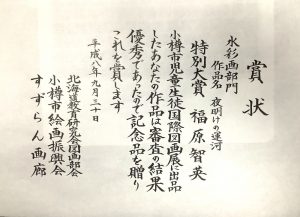 賞状
水彩画部門
作品名 夜明けの運河
特別大賞 福原智英
小樽市児童生徒国際図画展に出品
したあなたの作品は審査の結果
優秀であったので記念品を贈り
これを賞します
平成八年九月三十日
北海道教育研究会図画部会
小樽市絵画振興会
すずらん画廊